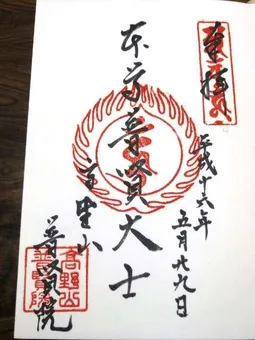 奉拝
平成十六年
五月廿九日
本尊普賢大士
高野山
普賢院
高野山
普賢院